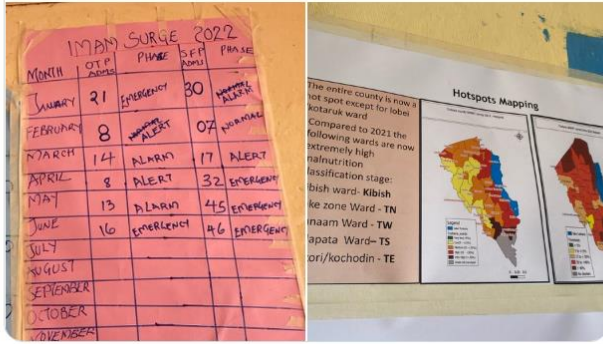 IMAM SURGE 2022
MONTH OTP ADMS PHASE SFP ADMS PHASE
JANUARY 21 EMERGENCY 30 ALARM
FEBRUARY 8 ALERT 07 NORMAL
MARCH 14 ALARM 17 ALERT
APRIL 8 ALERT 32 EMERGENCY
MAY 13 ALARM 45 EMERGENCY
JUNE 16 EMERGENCY 46 EMERGENCY
JULY
AUGUST
SEPTEMBER
OCTOBER
NOVEMBER
The entire county is now a
hot spot except for lobei
kotaruk ward
Compared to 2021 the
following wards are now
extremely high
malnutrition
classification stage:
bish ward- Kibish
ke zone Ward - TN
naam Ward - TW
apata Ward– TS
ori/kochodin - TE
Hotspots Mapping
Legend